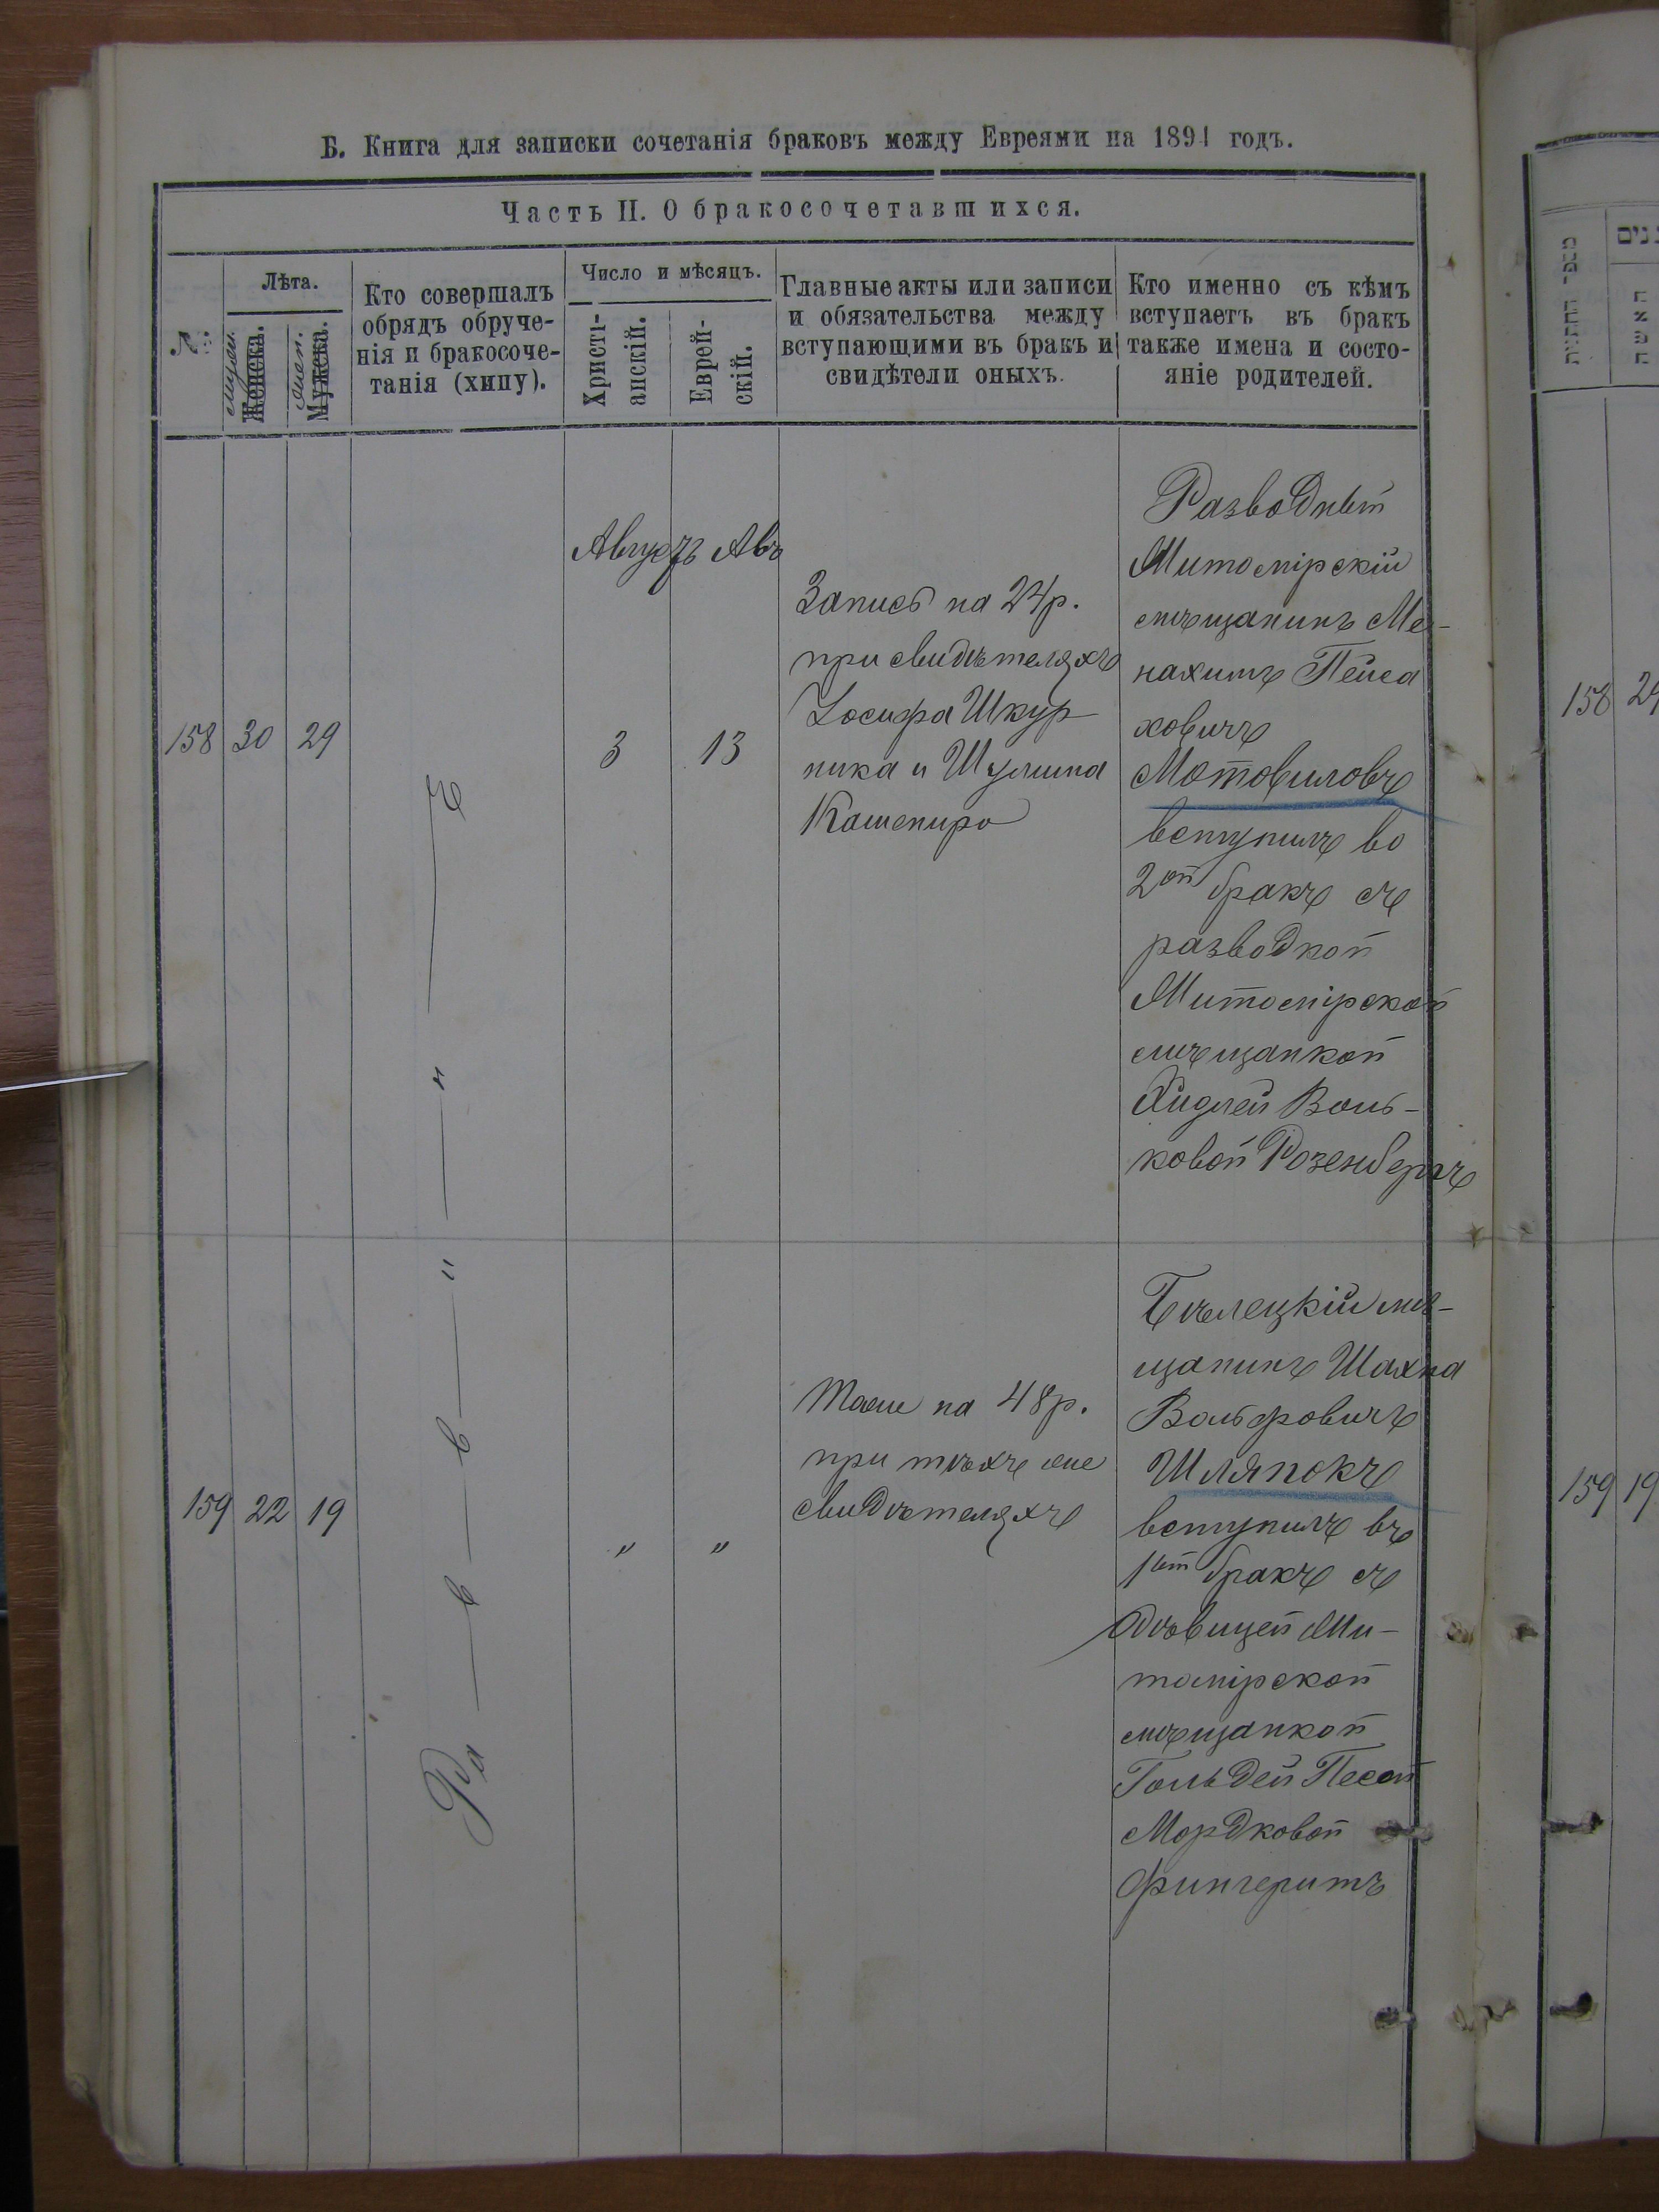 Б. Книга для записки сочетанія браковъ между Евреями на 1891 годъ.
Часть II. О бракосочетавшихся.
№
Лѣта.
Женска.
Мужеска.
Кто совершалъ
обрядъ обруче-
нія и бракосоче-
танія (хипу).
Число и мѣсяцъ.
Христі-
анскій.
Еврей-
скій.
Главные акты или записи
и обязательства между
вступающими въ бракъ и
свидѣтели оныхъ.
Кто именно съ кѣмъ
вступаетъ въ бракъ
также имена и состо-
яніе родителей.
158
30
29
Августъ
Авъ
3
13
Запись на 24 р.
при свидѣтеляхъ
Іосифа Шкур
ника и Шулима
Кашепиро
Разводный
Житомірскій
мѣщанинъ Ме-
нахимъ Пейса
ховичъ
Мотовиловъ
вступилъ во
2ой бракъ съ
разводкой
Житомірской
мѣщанкой
Хидлей Воль-
ковой Розенбергъ
Ра в в " " ъ
159
22
19
"
"
Тоже на 48 р.
при тѣхъ же
свидѣтеляхъ
Бѣлецкій мѣ-
щанинъ Шахна
Вольфовичъ
Шляпокъ
вступилъ въ
1ый бракъ съ
дѣвицей Жи-
томірской
мѣщанкой
Гольдей Песей
Мордковой
Фингеритъ
מספר החתנות
שנים
האשה
158
24
159
19